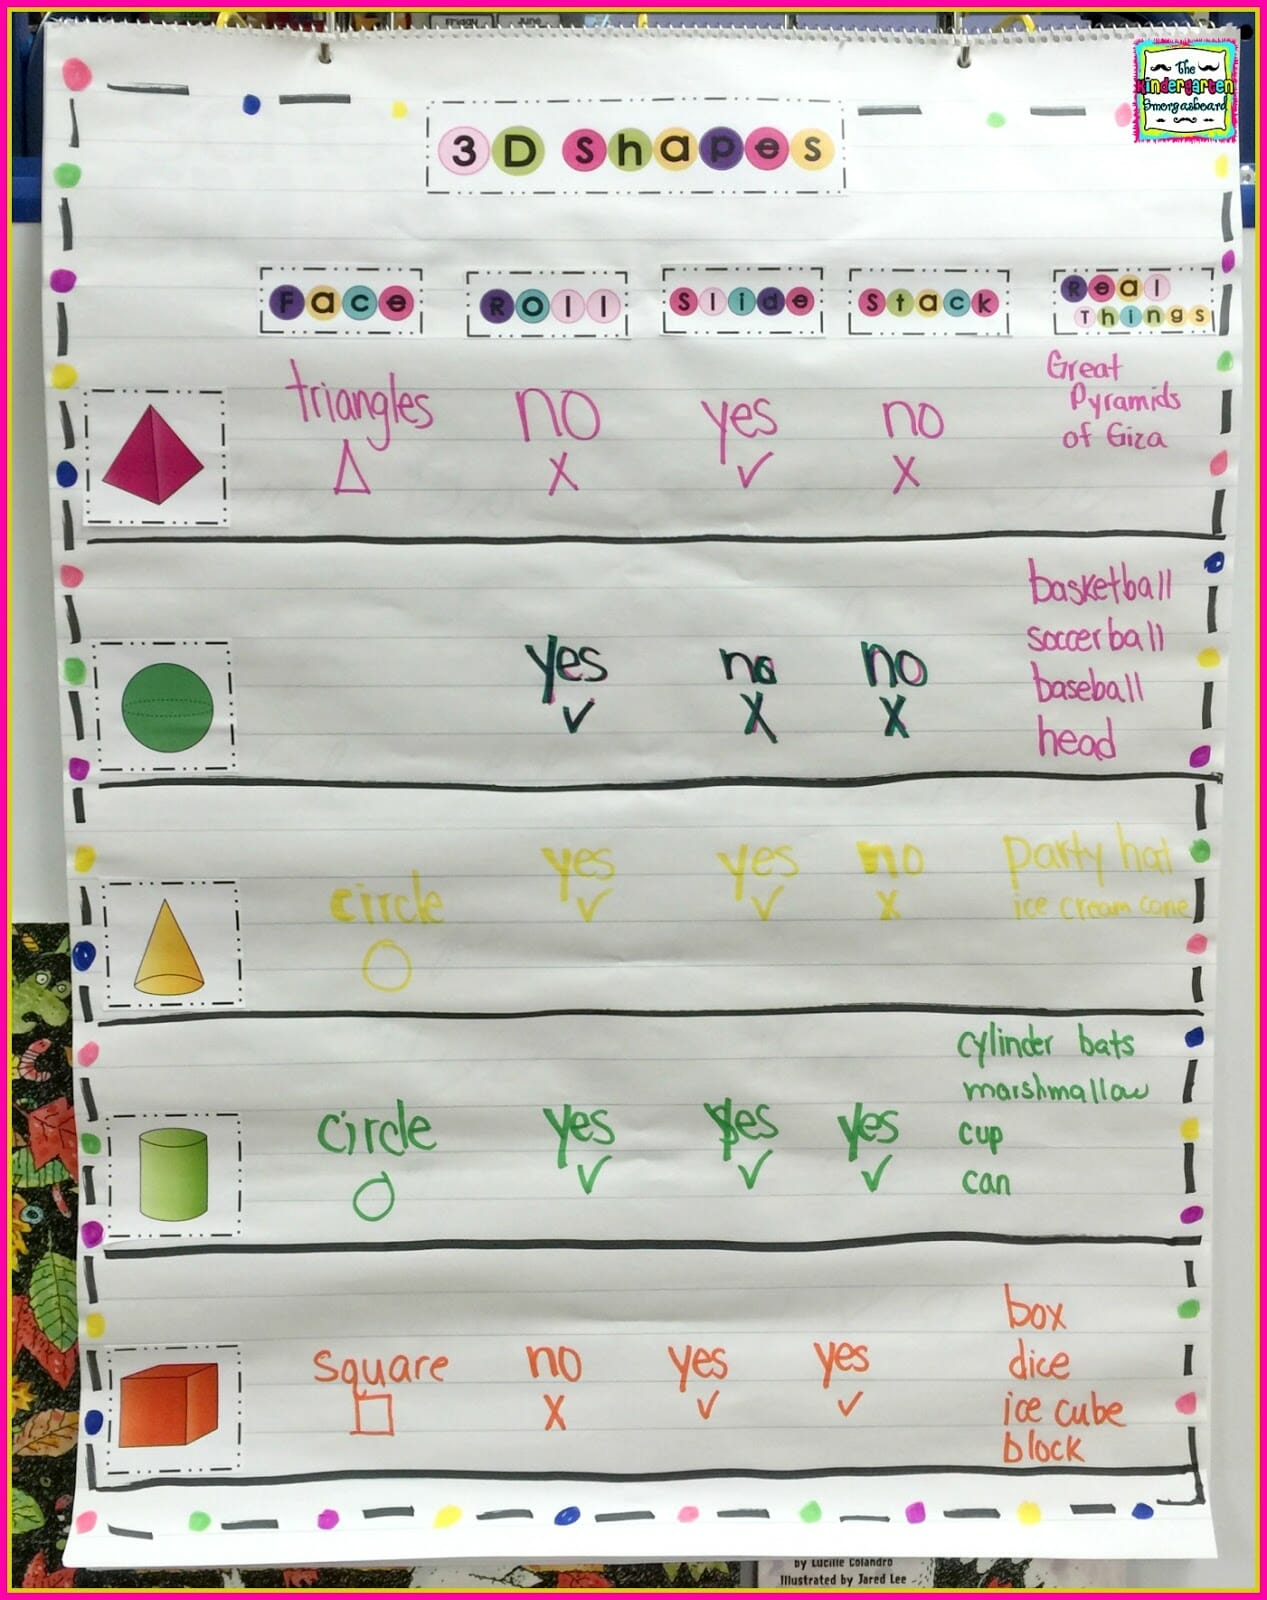 FRIDAY
June
The
Kindergarten
Smorgasboard
3D Shapes
Face Roll Slide Stack Real
Things
triangles no yes no Great
Pyramids
of Giza
X ✓ X
basketball
soccerball
yes no no baseball
✓ X X head
circle yes yes no party hat
✓ ✓ X ice cream cone
cylinder bats
marshmallow
circle yes yes yes cup
✓ ✓ ✓ can
box
square no yes yes dice
X ✓ ✓ ice cube
block
by Lucille Colandro
Illustrated by Jared Lee